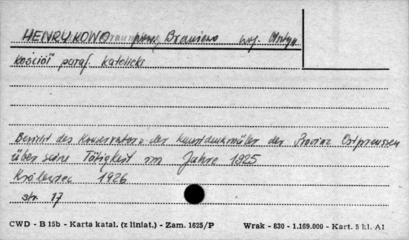 HENRYKOWO pow. Braniewo woj. Olsztyn
Kościół paraf. katolicki
Bericht des Konservators der Kunstdenkmäler der Provinz Ostpreussen
über seine Tätigkeit im Jahre 1925
Królewiec 1926
str. 17
CWD - B 15b - Karta katal. (z liniat.) - Zam. 1625/P Wrak - 830 - 1.169.000 - Kart. 5 kl. A1